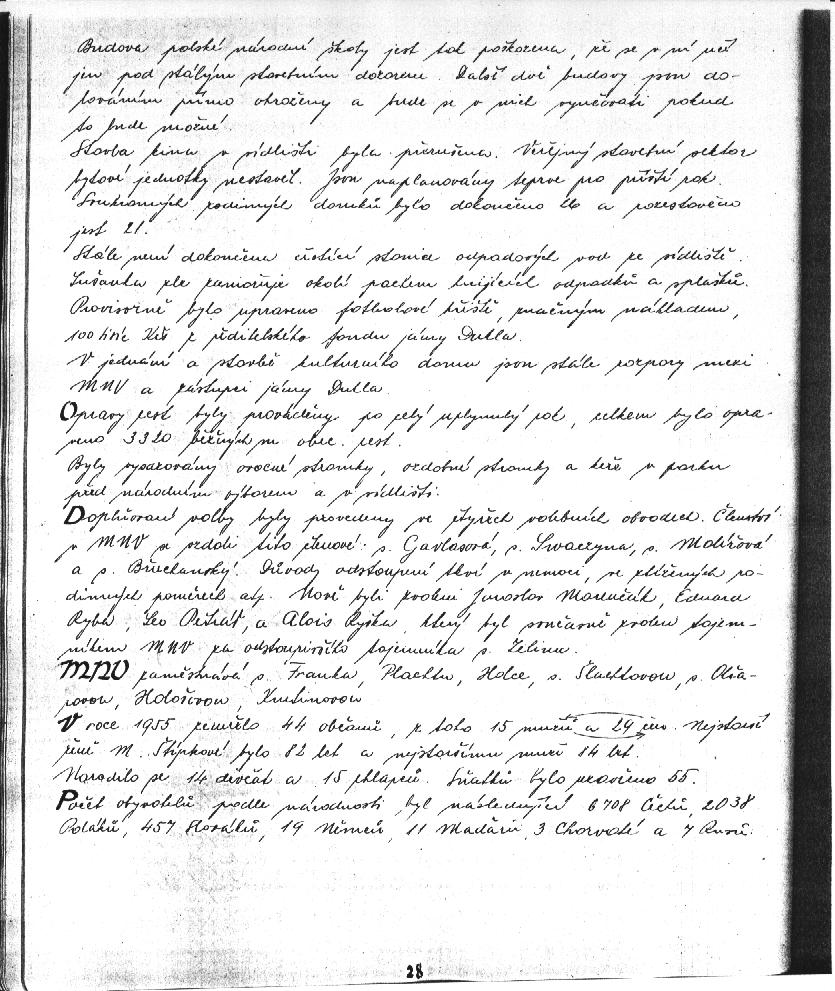 Budova polské národní školy jest tak poškozena, že se v ní učí
jen pod stálým stavebním dozorem. Další dvě budovy jsou do-
lováním přímo ohroženy a bude se v nich vyučovati pokud
to bude možné.
Stavba kina v sídlišti byla přerušena. Veřejný stavební sektor
bytové jednotky nestavěl. Jsou naplanovány teprve pro příští rok.
Soukromých rodinných domků bylo dokončeno 26 a rozestavěno
jest 21.
Stále není dokončena čistící stanice odpadových vod ze sídliště.
Sušanka zle zamořuje okolí pachem hnijících odpadků a splašků.
Provisorně bylo upraveno fotbalové hřiště, značným nákladem,
100 tisíc Kčs z ředitelského fondu jámy Dukla.
V jednání a stavbě kulturního domu jsou stále rozpory mezi
MNV a zástupci jámy Dukla.
Opravy cest byly prováděny po celý uplynulý rok, celkem bylo opra-
veno 3320 běžných m obec. cest.
Byly vysazovány ovocné stromky, ozdobné stromky a keře v parku
před národním výborem a v sídlišti.
Doplňovací volby byly provedeny ve čtyřech volebních obvodech. Členství
v MNV se vzdali tito členové: s. Gavlasová, s. Swaczyna, s.
a s. Břuchanský. Důvody odstoupení tkví v nemoci, ve ztížených ro-
dinných poměrech atp. Nově byli zvoleni Jaroslav, Eduard
Ryba, Leo Petráš, a Alois Ryška, který byl současně zvolen tajem-
níkem MNV za odstoupivšího tajemníka s. Zelinu.
MNV zaměstnává s. Franka, Plachtu, Holce, s. Šlachtovou, s.
Hološovou,
V roce 1955 zemřelo 44 občanů, z toho 15 mužů a 29 žen. Nejstarší
ženě M. Štípkové bylo 82 let a nejstaršímu muži 84 let.
Narodilo se 14 děvčat a 15 chlapců. Sňatků bylo uzavřeno 55.
Počet obyvatelů podle národnosti byl následující 6708 Čechů, 2038
Poláků, 457 Slováků, 19 Němců, 11 Maďarů, 3 Chorvaté a 7 Rusů.
28